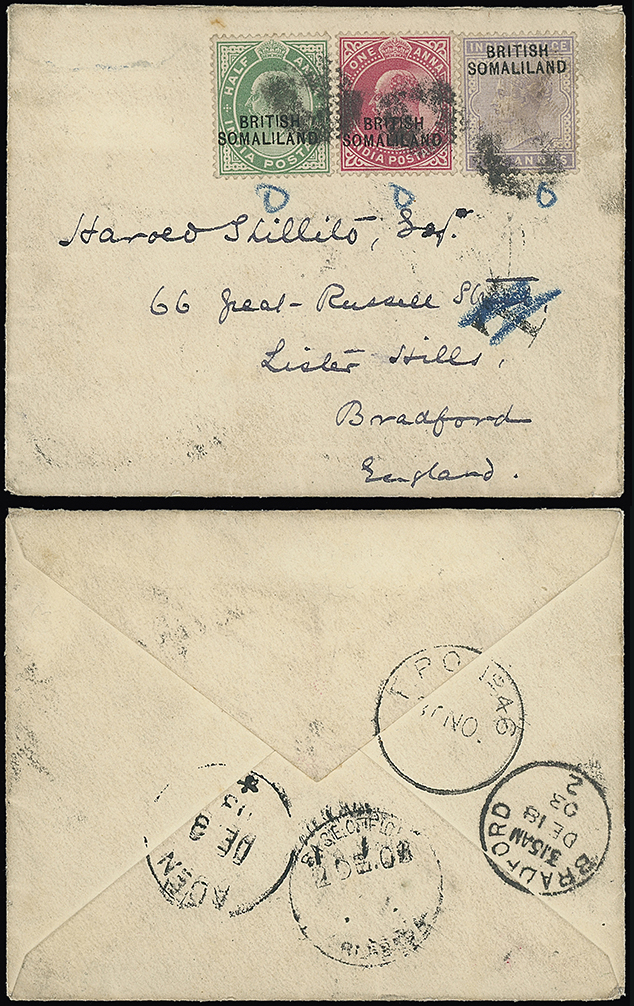 HALF ANNA
BRITISH
SOMALILAND
INDIA POSTAGE
ONE ANNA
BRITISH
SOMALILAND
INDIA POSTAGE
BRITISH
SOMALILAND
ANNAS
D D D
Harold Shillito, Esq.
66 Great Russell St
Lister Hills,
Bradford
England.
T.P.O.
46
NO
BRADFORD
3.15AM
DE 18
03
2
ADEN
DE
8
2 DE.03